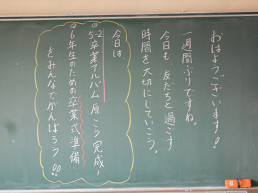 おはようございます!!
一週間ぶりですね。
今日も 友だちと過ごす
時間を大切にしていこう。
今日は
◎5-2 卒業アルバム 完成!
◎6年生のための卒業式準備
をみんなでがんばろう!!